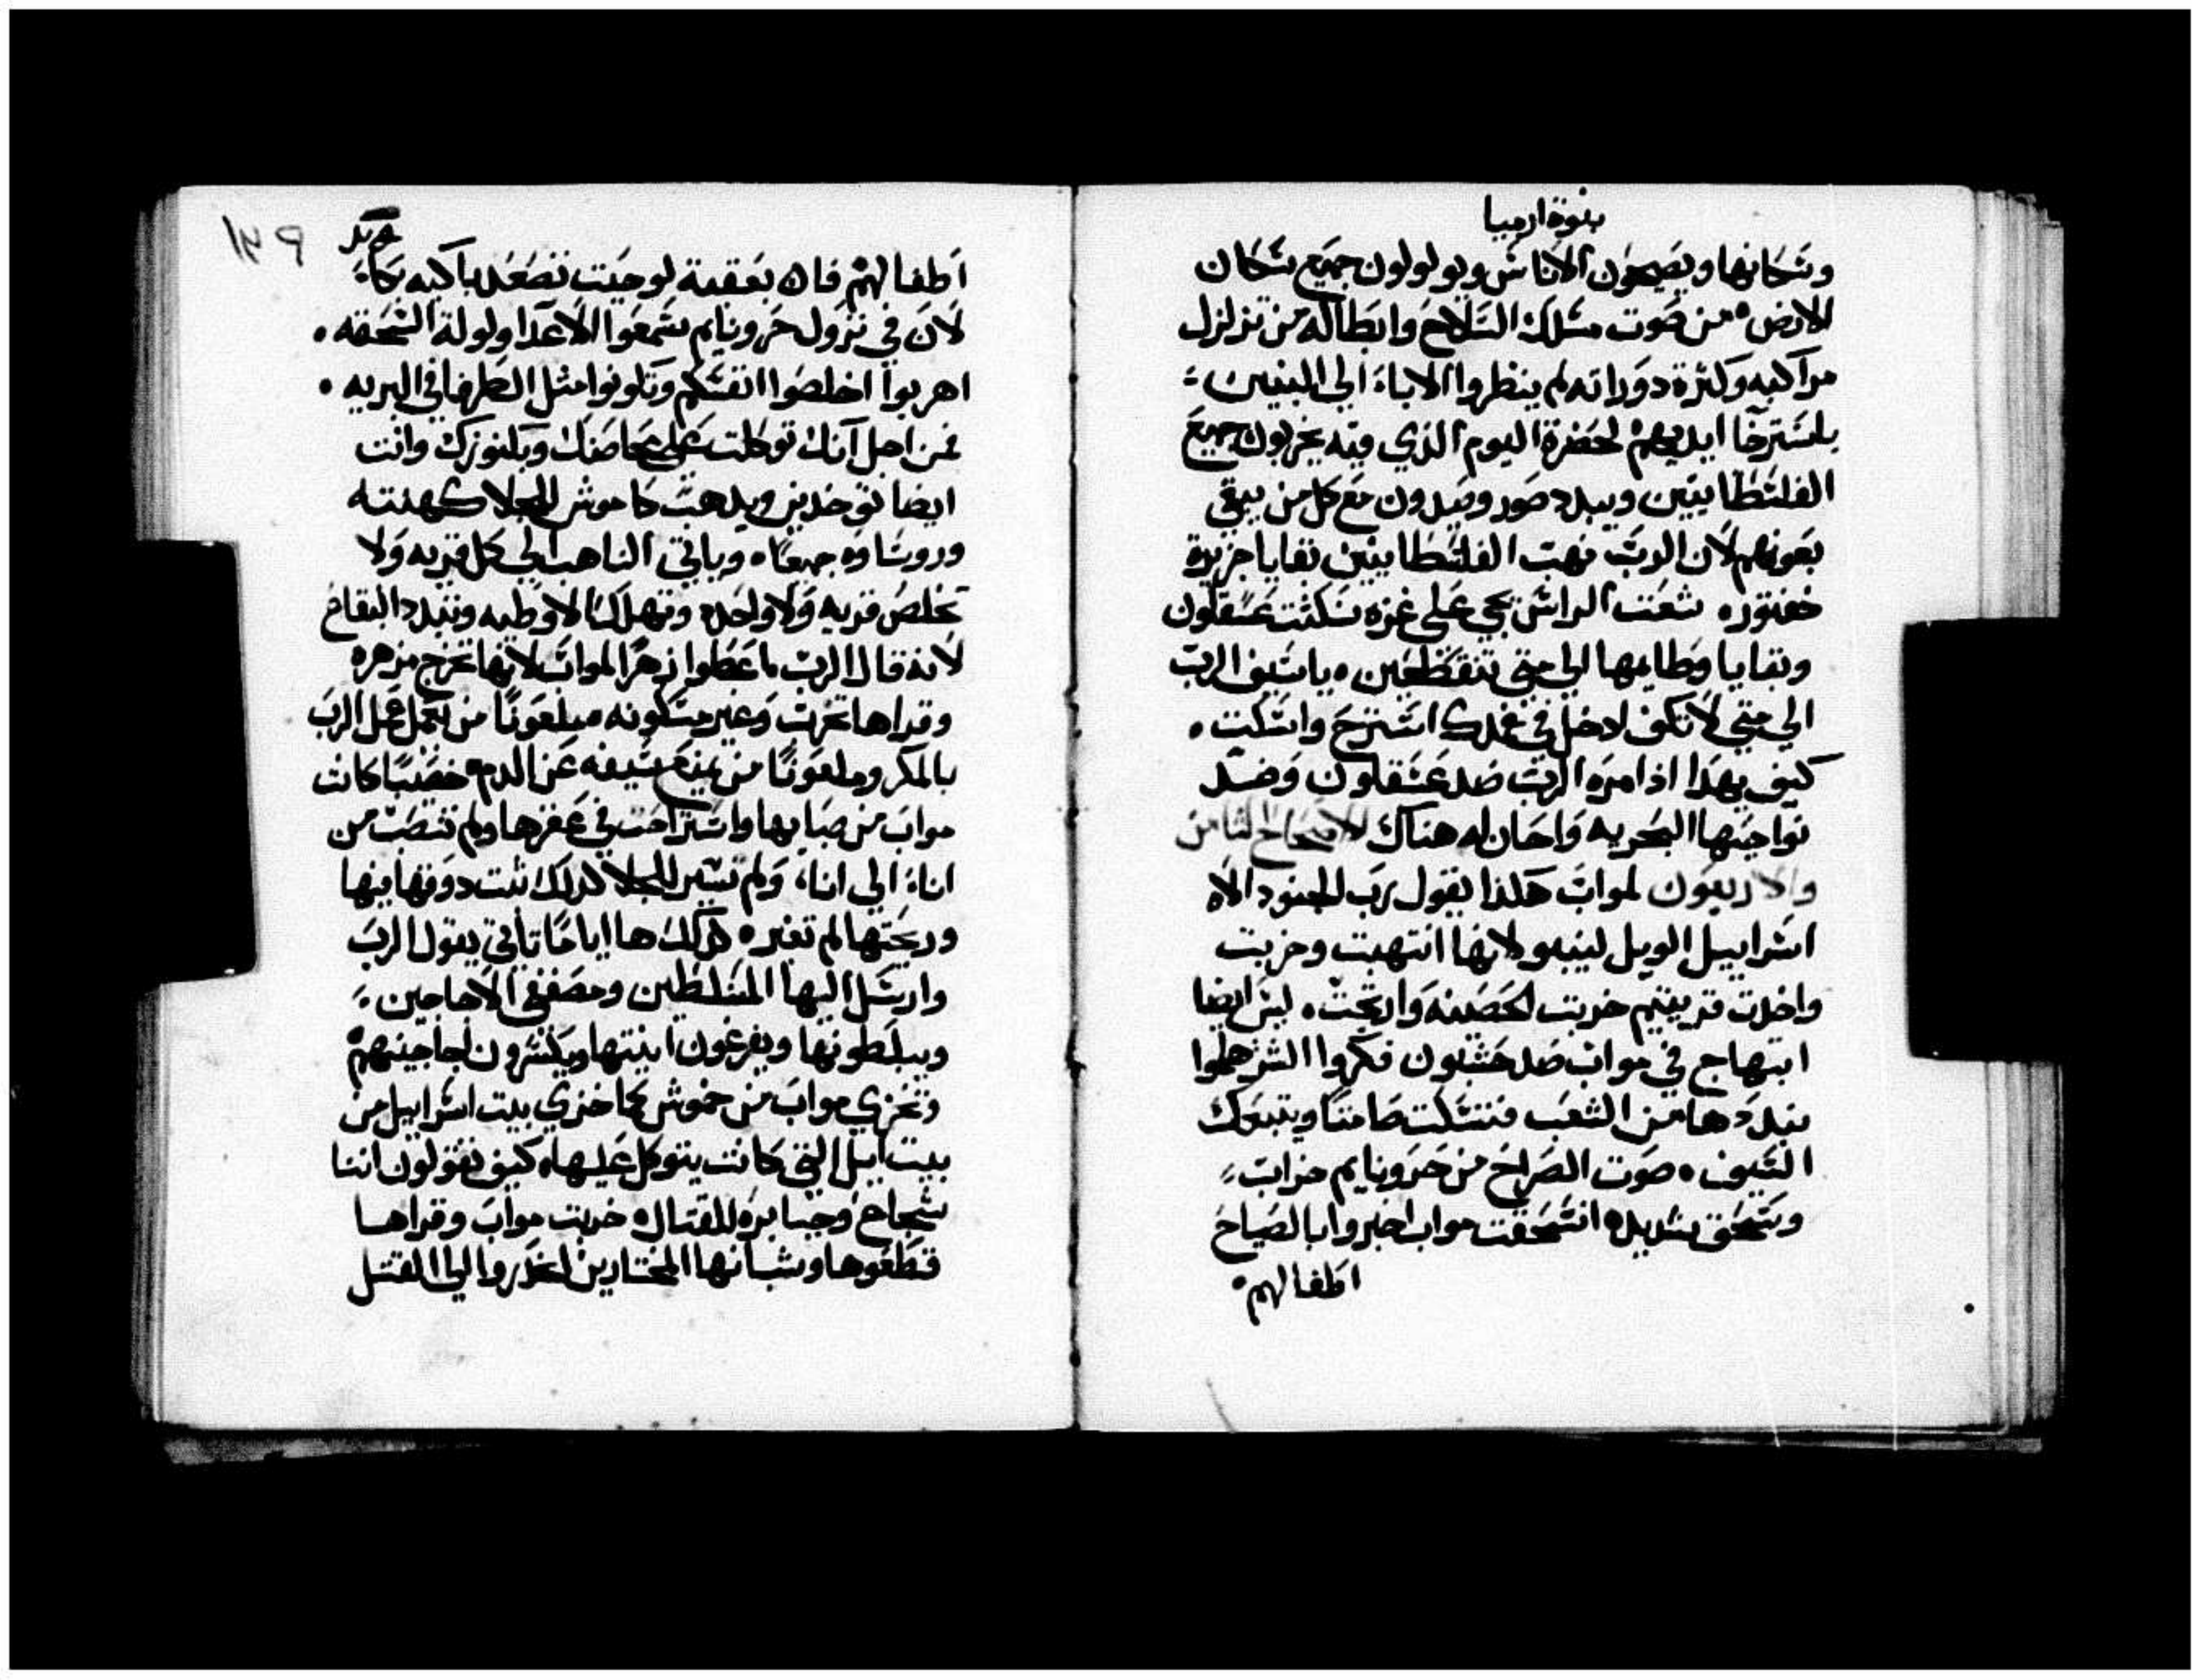 بنوة ارميا
وسكانها ويصيحون الاناس ويولولون جميع سكان
الارض ه من صوت مسلك السلاح وابطاله من تزلزل
مراكبه وكثرة دوراته لم ينظروا الاباء الي البنين
باسترخا ايديهم لحضرة اليوم الذي فيه يخربون جميع
الفلسطانيين ويبدد صور وصيدون مع كل من يبقي
بعونهم لان الرب نهب الفلسطانيين بقايا جزيرة
خفتوره شعت الراس يجي علي غزه سكتت عسقلون
وبقايا وطايها الي متي تنقطعين ه يا سيف الرب
الي متي لا تكف ادخل في غمدك استرح واسكت ه
كيف يهدا اذا امره الرب ضد عسقلون وضد
نواحيها البحريه واحان له هناك الاصحاح الثامن
والاربعون لمواب هكذا يقول رب الجنود الاه
اسراييل الويل لينبو لانها انتهبت وخزيت
واخدت قريتيم خزيت الحصينه وارتجت ه ليس ايضا
ابتهاج في مواب ضد حشبون فكروا الشر هلموا
نبددها من الشعب فتسكت صامتا ويتبعك
السيف ه صوت الصراخ من حرونايم خراب
وسحق شديد ه انسحقت مواب اخبروا بالصياح
اطفالهم ه
اطفالهم فان بعقبة لوحيت تصعد باكيه بكاء
لان في نزول حرونايم سمعوا الاعدا ولولة السحقه ه
اهربوا اخلصوا انفسكم وتكونوا مثل الطرفا في البريه ه
فمن اجل انك توكلت علي محاصنك وبكنوزك وانت
ايضا توخذين ويدهب كاموش للجلا كهنته
وروساوه جميعا ه وياتي الناهب الي كل قريه ولا
تخلص قريه ولا واحده وتهلك الاوطيه وتتبدد البقاع
لانه قال الرب ه اعطوا زهرا لمواب لانها تخرج مزهره
وقراها تخرب وغير مسكونه ه ملعونا من يعمل عمل الرب
بالمكر وملعونا من يمنع سيفه عن الدم ه خصبا كانت
مواب من صبايها واستراحت في عفرها ولم تنصب من
اناء الي اناء ولم تسير للجلا لدلك تبت دوقها فيها
وريحتها لم تغير ه لدلك ها اياما تاتي يقول الرب
وارسل اليها المسلطين ومصففي الاجاجين
ويبلطونها ويفرغون انيتها ويكسرون اجاجينهم
وتخزي مواب من خموش كما خزي بيت اسراييل من
بيت ايل التي كانت يتوكل عليها ه كيف تقولون اننا
شجاع وجبابره للقتال ه خربت مواب وقراها
قطعوها وشبانها المختارين انحدروا الي القتل